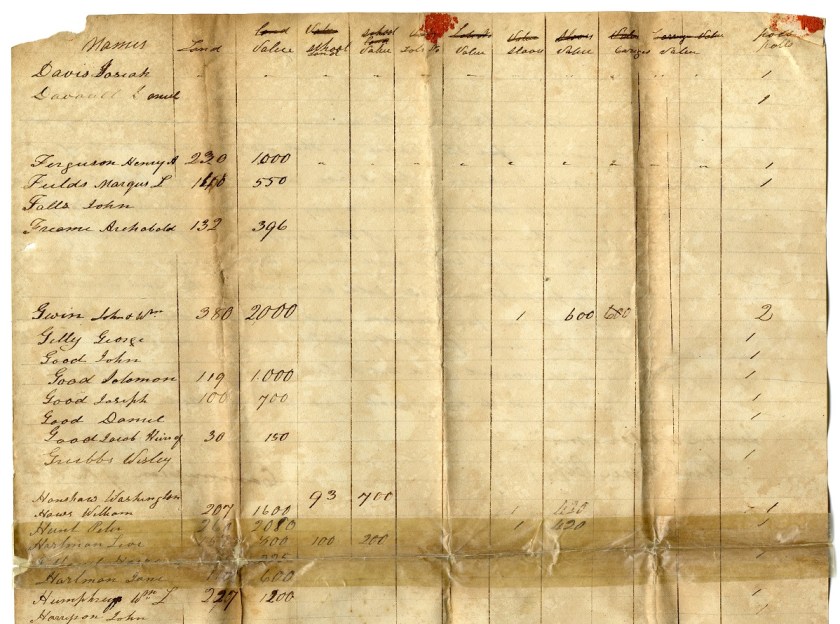 Names Land Land Value Value School Land School Land Value Value Slaves Slaves Value Value Carriage Value Poll Polls
Davis Josiah - - - - - - - - - - 1
Daniel 1
Ferguson Henry A 220 1000 - - - - - - - 1
Fields Marqus L 550 1
Falls John
Freeme Archobald 132 396
Gwin John & Wm 380 2000 1 600 600 2
Gelly George 1
Good John 1
Good Solomon 119 1000 1
Good Joseph 100 700 1
Good Daniel 1
Good Jacob Heirs of 30 150
Grubbs Wesley 1
Honshaw Washington 93 700
Haws William 207 1600 1 430 1
Hunt Peter 2000 1 420 1
Hartman 300 100 200
Hartman Jane 600
Humphrey Wm L 227 1200 1
Harrison John 1